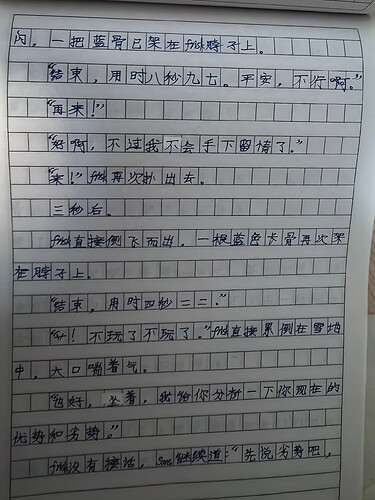 闪，一把蓝骨已架在frisk脖子上。
“结束，用时八秒九七。平实，不行啊。”
“再来！”
“好啊，不过我不会手下留情了。”
“来！”frisk再次扑出去。
三秒后。
frisk直接倒飞而出，一根蓝色长骨再次架
在脖子上。
“结束，用时四秒二二。”
“不玩了不玩了。”frisk直接累倒在雪地
中，大口喘着气。
“也好，坐着，我给你分析一下你现在的
优势和劣势。”
frisk没有接话，Sans继续道：“先说劣势吧，